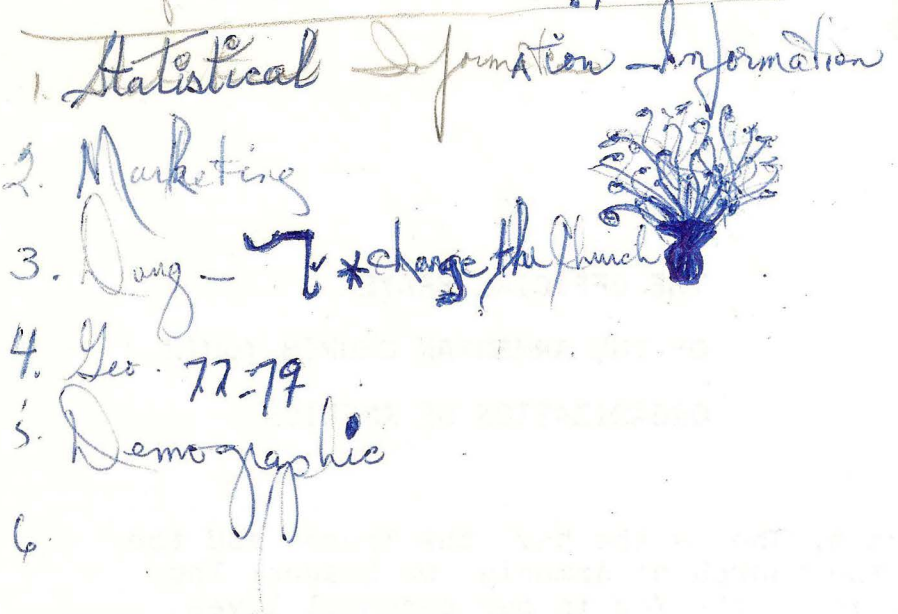 1. Statistical Information Information
2. Marketing
3. - * change the Church
4. Geo. 77-79
5. Demographic
6.